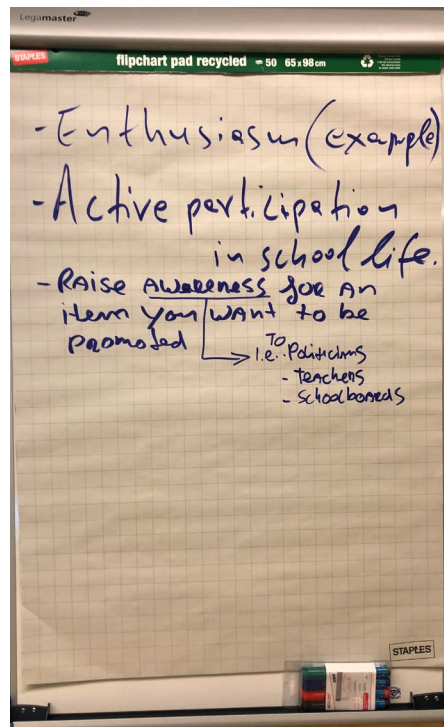 Legamaster
STAPLES flipchart pad recycled 50 65 x 98 cm
- Enthusiasm (example)
- Active participation
in school life.
- Raise awareness for an
item you want to be
promoted
To
i.e. Politicians
- teachers
- schoolboards
STAPLES